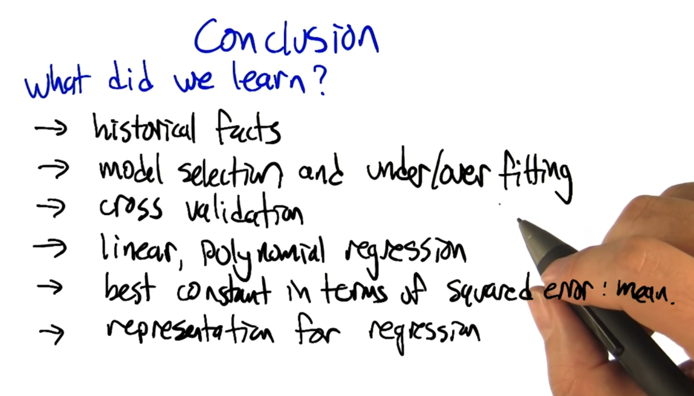 Conclusion
what did we learn?
→ historical facts
→ model selection and under/over fitting
→ cross validation
→ linear, polynomial regression
→ best constant in terms of squared error: mean.
→ representation for regression